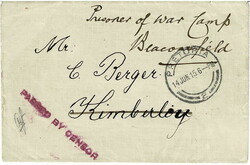 Prisoner of War Camp
Beaconsfield
Mr.
C. Berger
Kimberley
14 JUN 15 6
PASSED BY CENSOR